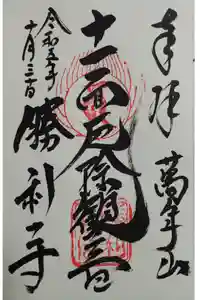 奉拝
萬年山
十一面厄除観世音
令和五年
十月三日
勝利寺